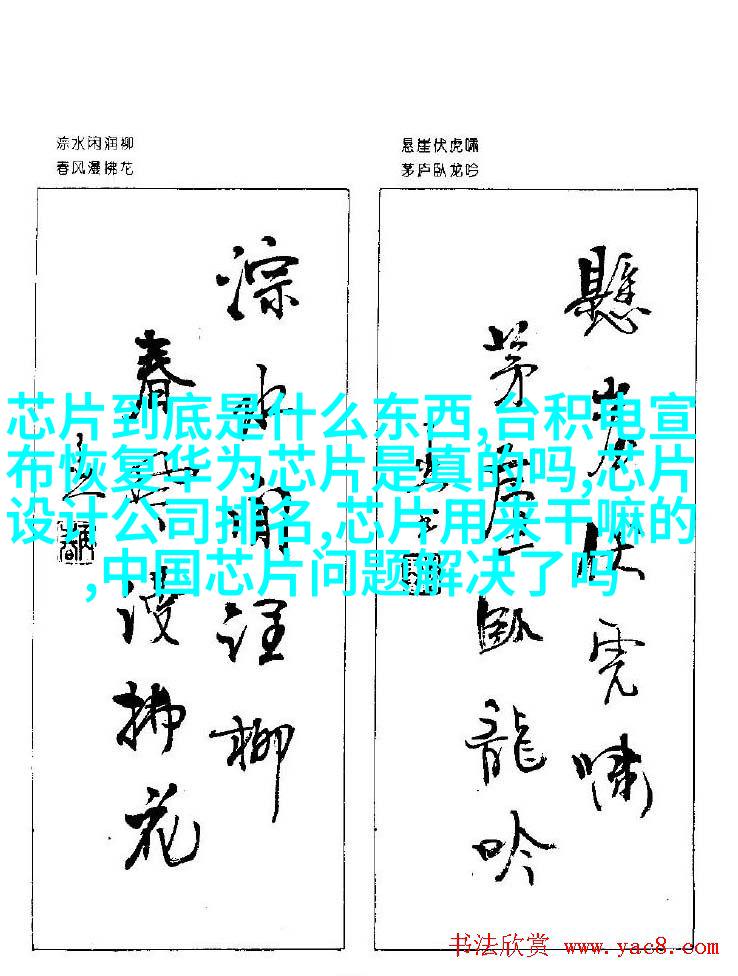 淙水闲润柳
春风漫拂花
悬崖伏虎啸
茅庐卧龙吟
懸崖伏虎啸
茅廬臥龍吟
淙水闲润柳
春风漫拂花
芯片到底是什么东西,台积电宣
布恢复华为芯片是真的吗,芯片
设计公司排名,芯片用来干嘛的
,中国芯片问题解决了吗
书法欣赏 www.yac8.com